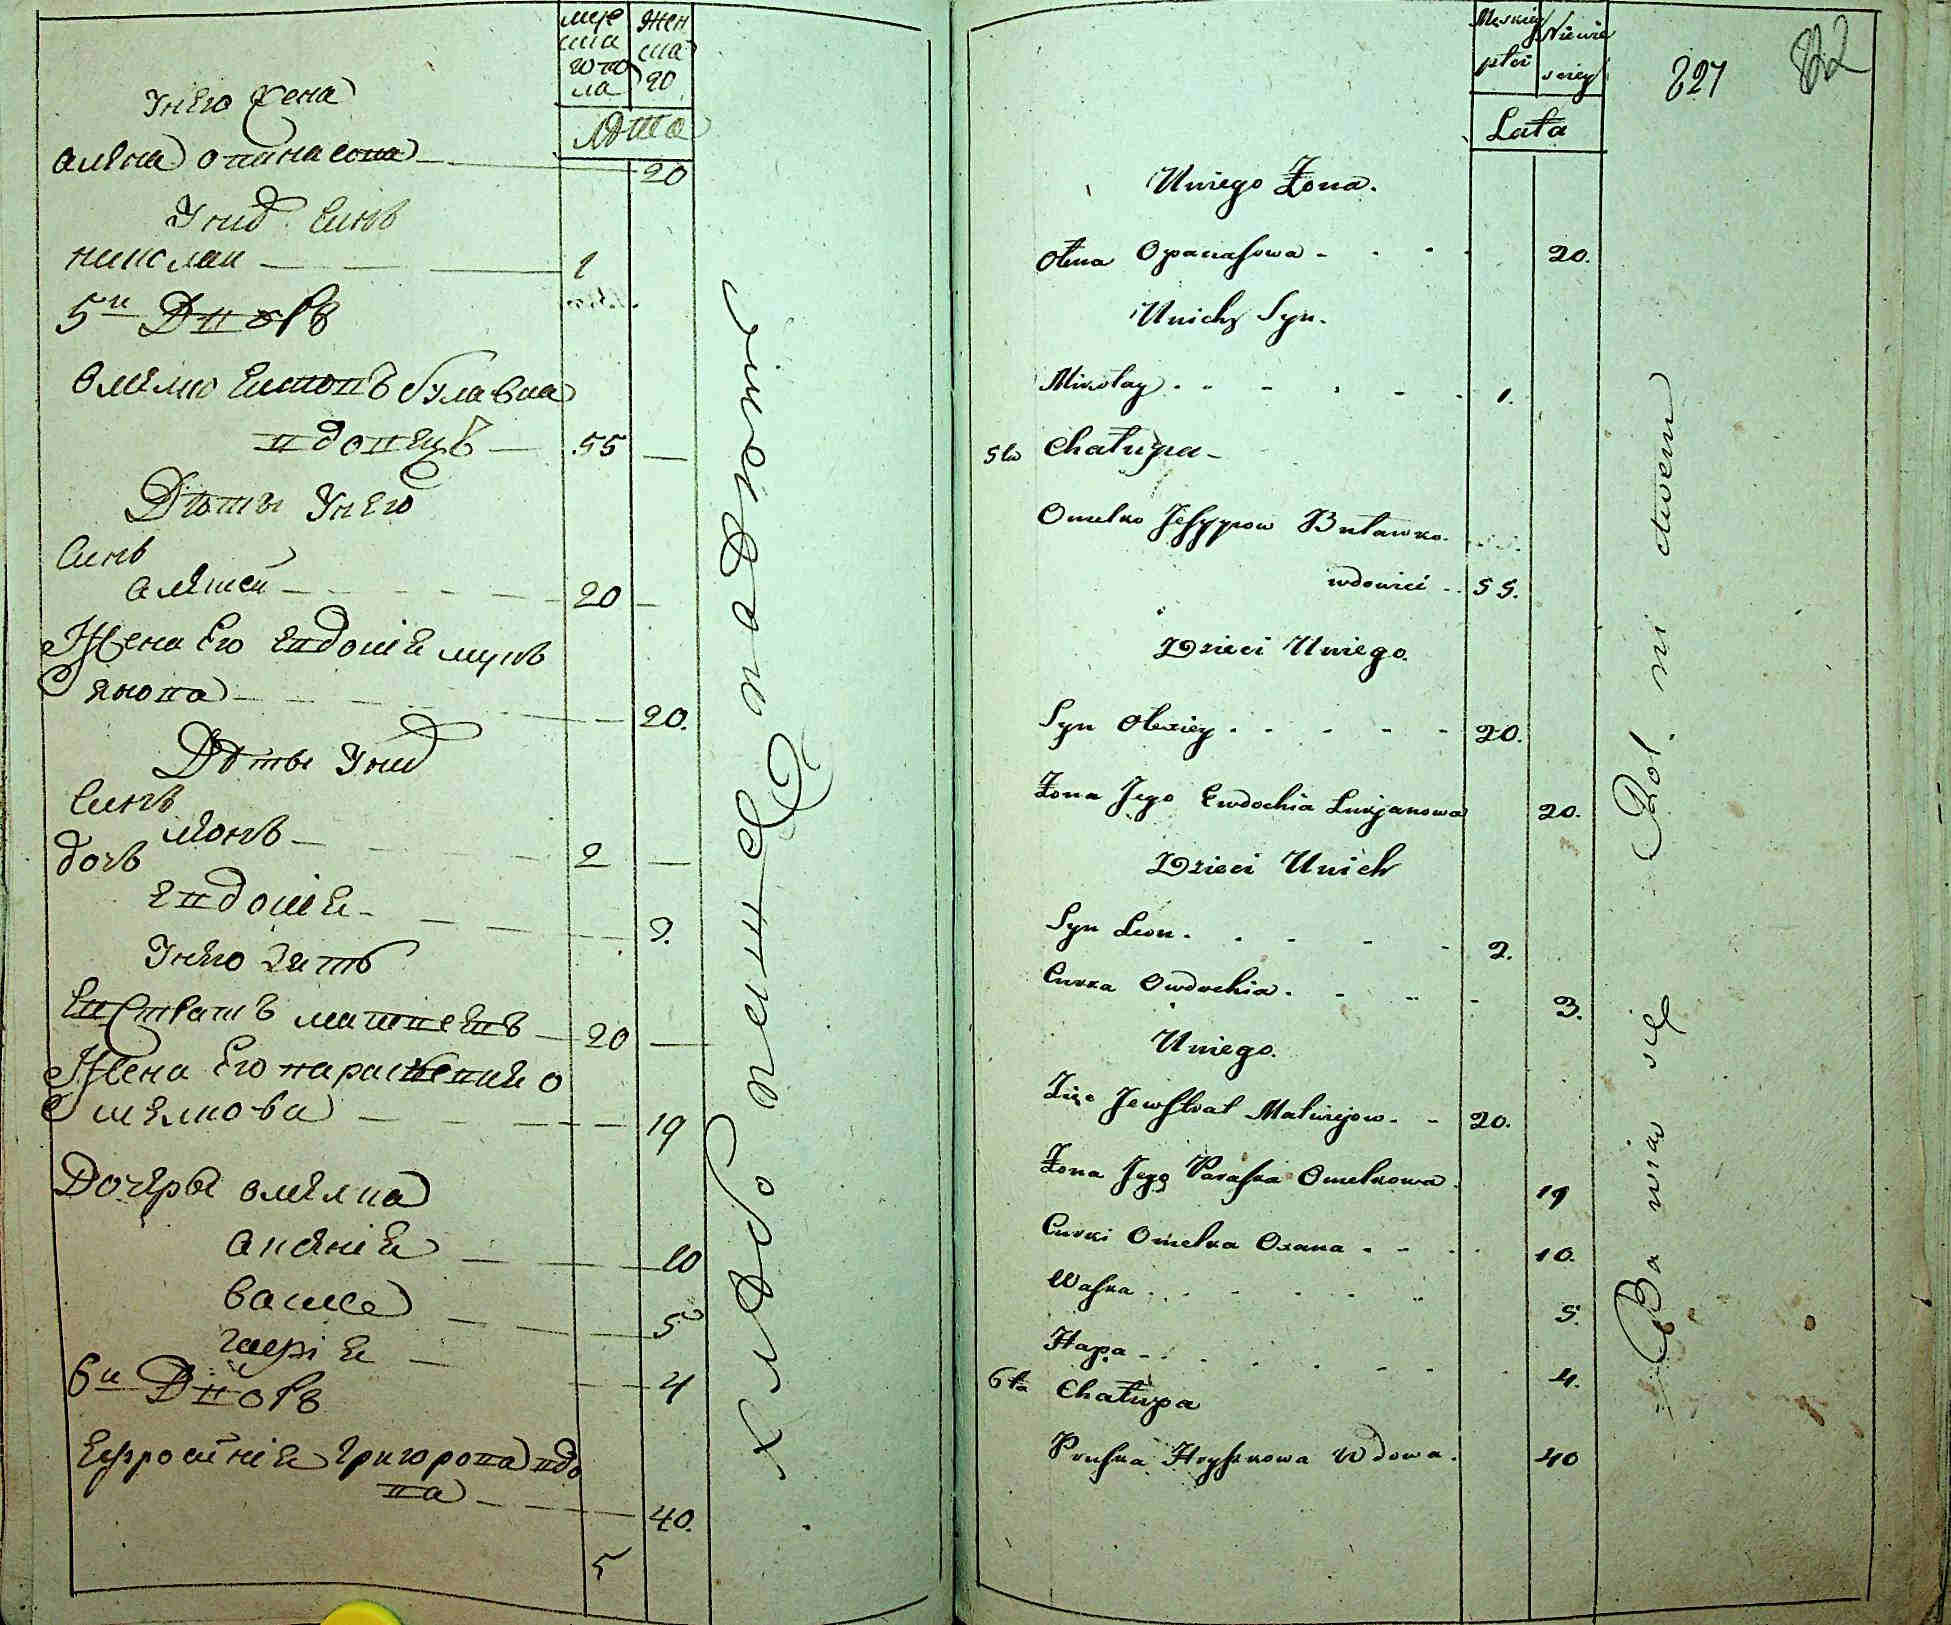 муж
ска
го по
ла
жен
ска
го
Лѣта
У него жена
олена опанасова 20
У них синъ
николаи 1
5й Дворъ
омелко Есиповъ булавка
вдовецъ 55
Дѣты У него
Синъ
олексей 20
Жена Его Евдокіе лукъ
янова 20.
Дѣты У них
Синъ
леонъ 2
дочъ
Евдокіе 3.
У него зять
Евстратъ матвеевъ 20
Жена Его параскевие о
мелкова 19
Дочеры омелка
аксение 10
васка 5
гапіе 4
6й Дворъ
Ефросиніе григорова вдо
ва 40.
5
хлѣбопашецъ поданіи
Męskiey
płci
Niewie
sciey
Lata
827
822
Uniego Żona.
Olena Opanasowa 20.
Unich Syn.
Mikołay 1.
5ta Chałupa
Omelko Jesypow Buławko.
wdowiec 55.
Dzieci Uniego.
Syn Olexiey 20.
Żona Jego Ewdochia Lukjanowa 20.
Dzieci Unich
Syn Leon. 2.
Curka Owdochia. 3.
Uniego.
Zięc Jewstrat Matwiejow. 20.
Żona Jego Paraska Omelkowa. 19
Curki Omelka Oxana 10.
Waska 5.
Hapa 4.
6ta Chałupa
Pruska Hryhorowa Wdowa. 40
Bawia się Rolnictwem